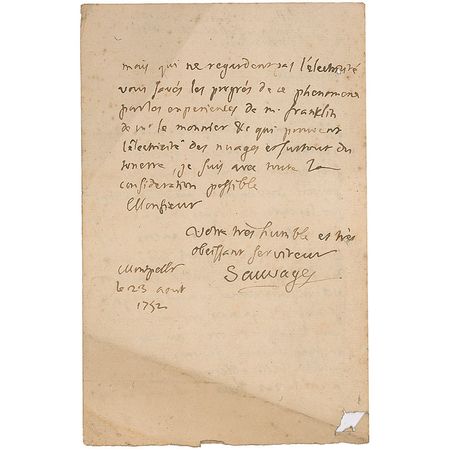 mais qui ne regardent pas l'électricité
vous savés les progrès de ce phenomene
par les experiences de mr franklin
de mr le monnier &c qui prouvent
l'électricité des nuages et surtout du
tonerre, je suis avec toute la
consideration possible
Monsieur
Votre très humble et très
obeissant serviteur
Sauvages
Montpellr
le 23 aout
1752